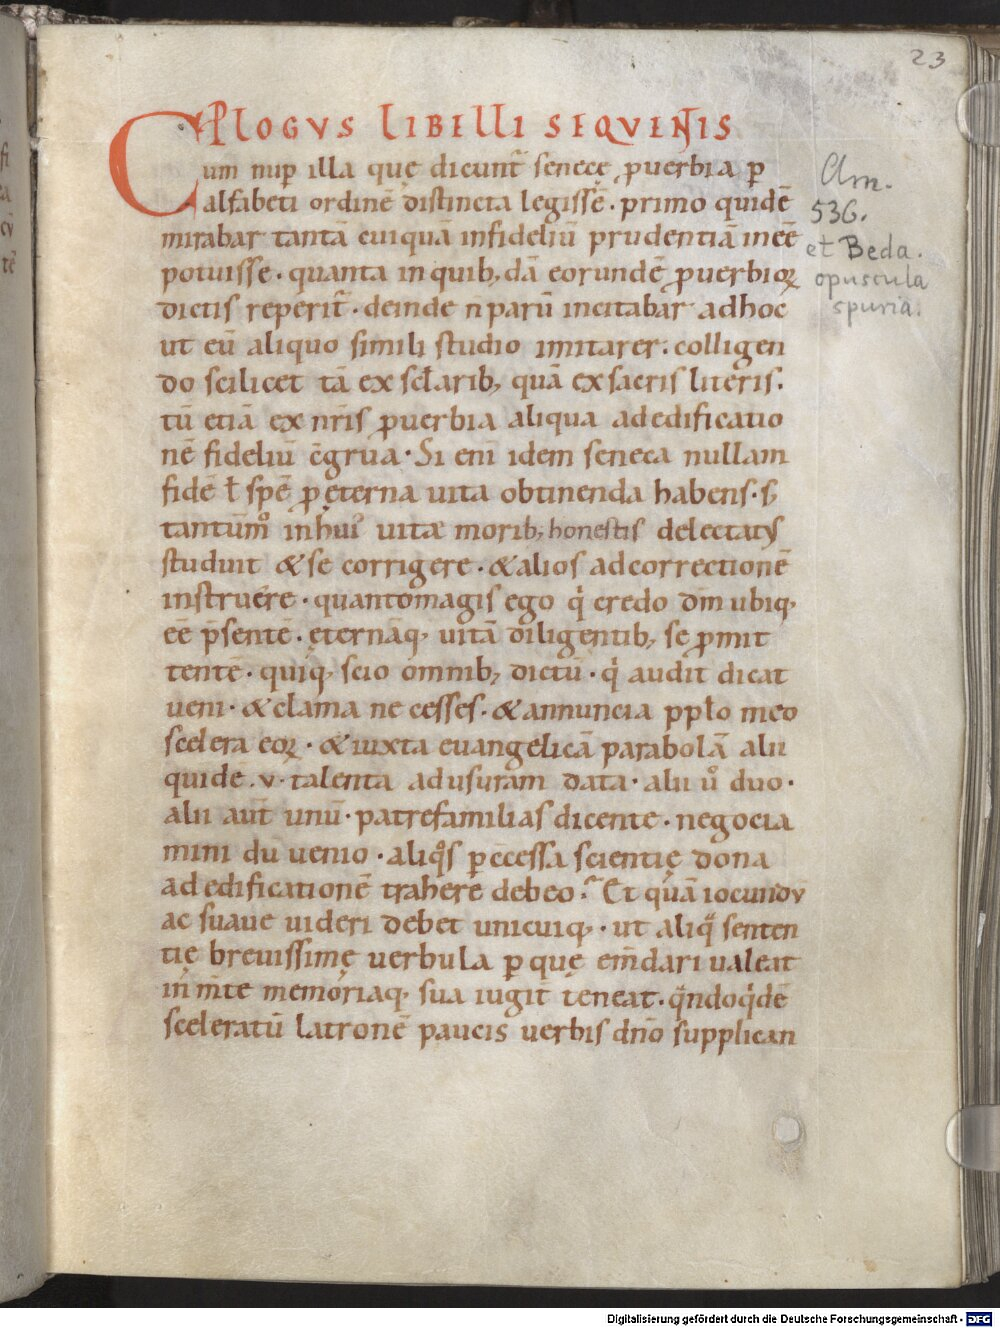 23
PLOGVS LIBELLI SEQVENTIS
Cum nup̄ illa quę dicunt̄ senecę ꝓuerbia ꝑ
alfabeti ordinē distincta legissē · primo quidē
mirabar tantā cuiquā infideliū prudentiā ineē
potuisse · quanta in quib; dā eorundē ꝓuerbioꝝ
dictis reperit̄ · deinde n̄ parū incitabar adhoc
ut eū aliquo simili studio imitarer · colligen
do scilicet tā ex scl̄arib; quā ex sacris literis ·
tū etiā ex nr̄is ꝓuerbia aliqua ad edificatio
nē fideliū c̄grua · Si eni idem seneca nullam
fidē ł spē ꝓ ęterna uita obtinenda habens · s;
tantūmͦ in hui' uitæ morib; honestis delectatus
studuit & se corrigere · & alios ad correctionē
instruēre · quantomagis ego q̇ credo dm̄ ubiq;
eē p̄sentē · ęternāq; uitā diligentib; se ꝓmit
tentē · quiq; scio omnib; dictū · q̇ audit dicat
ueni · & clama ne cesses · & annuncia ppło meo
scelera eoꝝ · & iuxta euangelicā parabolā alii
quidē · v · talenta ad usuram data · alii uͦ duo ·
alii aut̄ unū · patrefamilias dicente · negocia
mini du uenio · aliq̊s ꝑ c̄cessa scientię dona
ad edificationē trahere debeo · Et quā iocundū
ac suaue uideri debet unicuiq; · ut aliq̄ senten
tię breuissimę uerbula ꝑ quę em̄dari ualeat
in m̄te memoriaq; sua iugit̄ teneat · qn̄doq̇dē
sceleratū latronē paucis uerbis dn̄o supplican
Clm.
536.
et Beda.
opuscula
spuria.
Digitalisierung gefördert durch die Deutsche Forschungsgemeinschaft - DFG